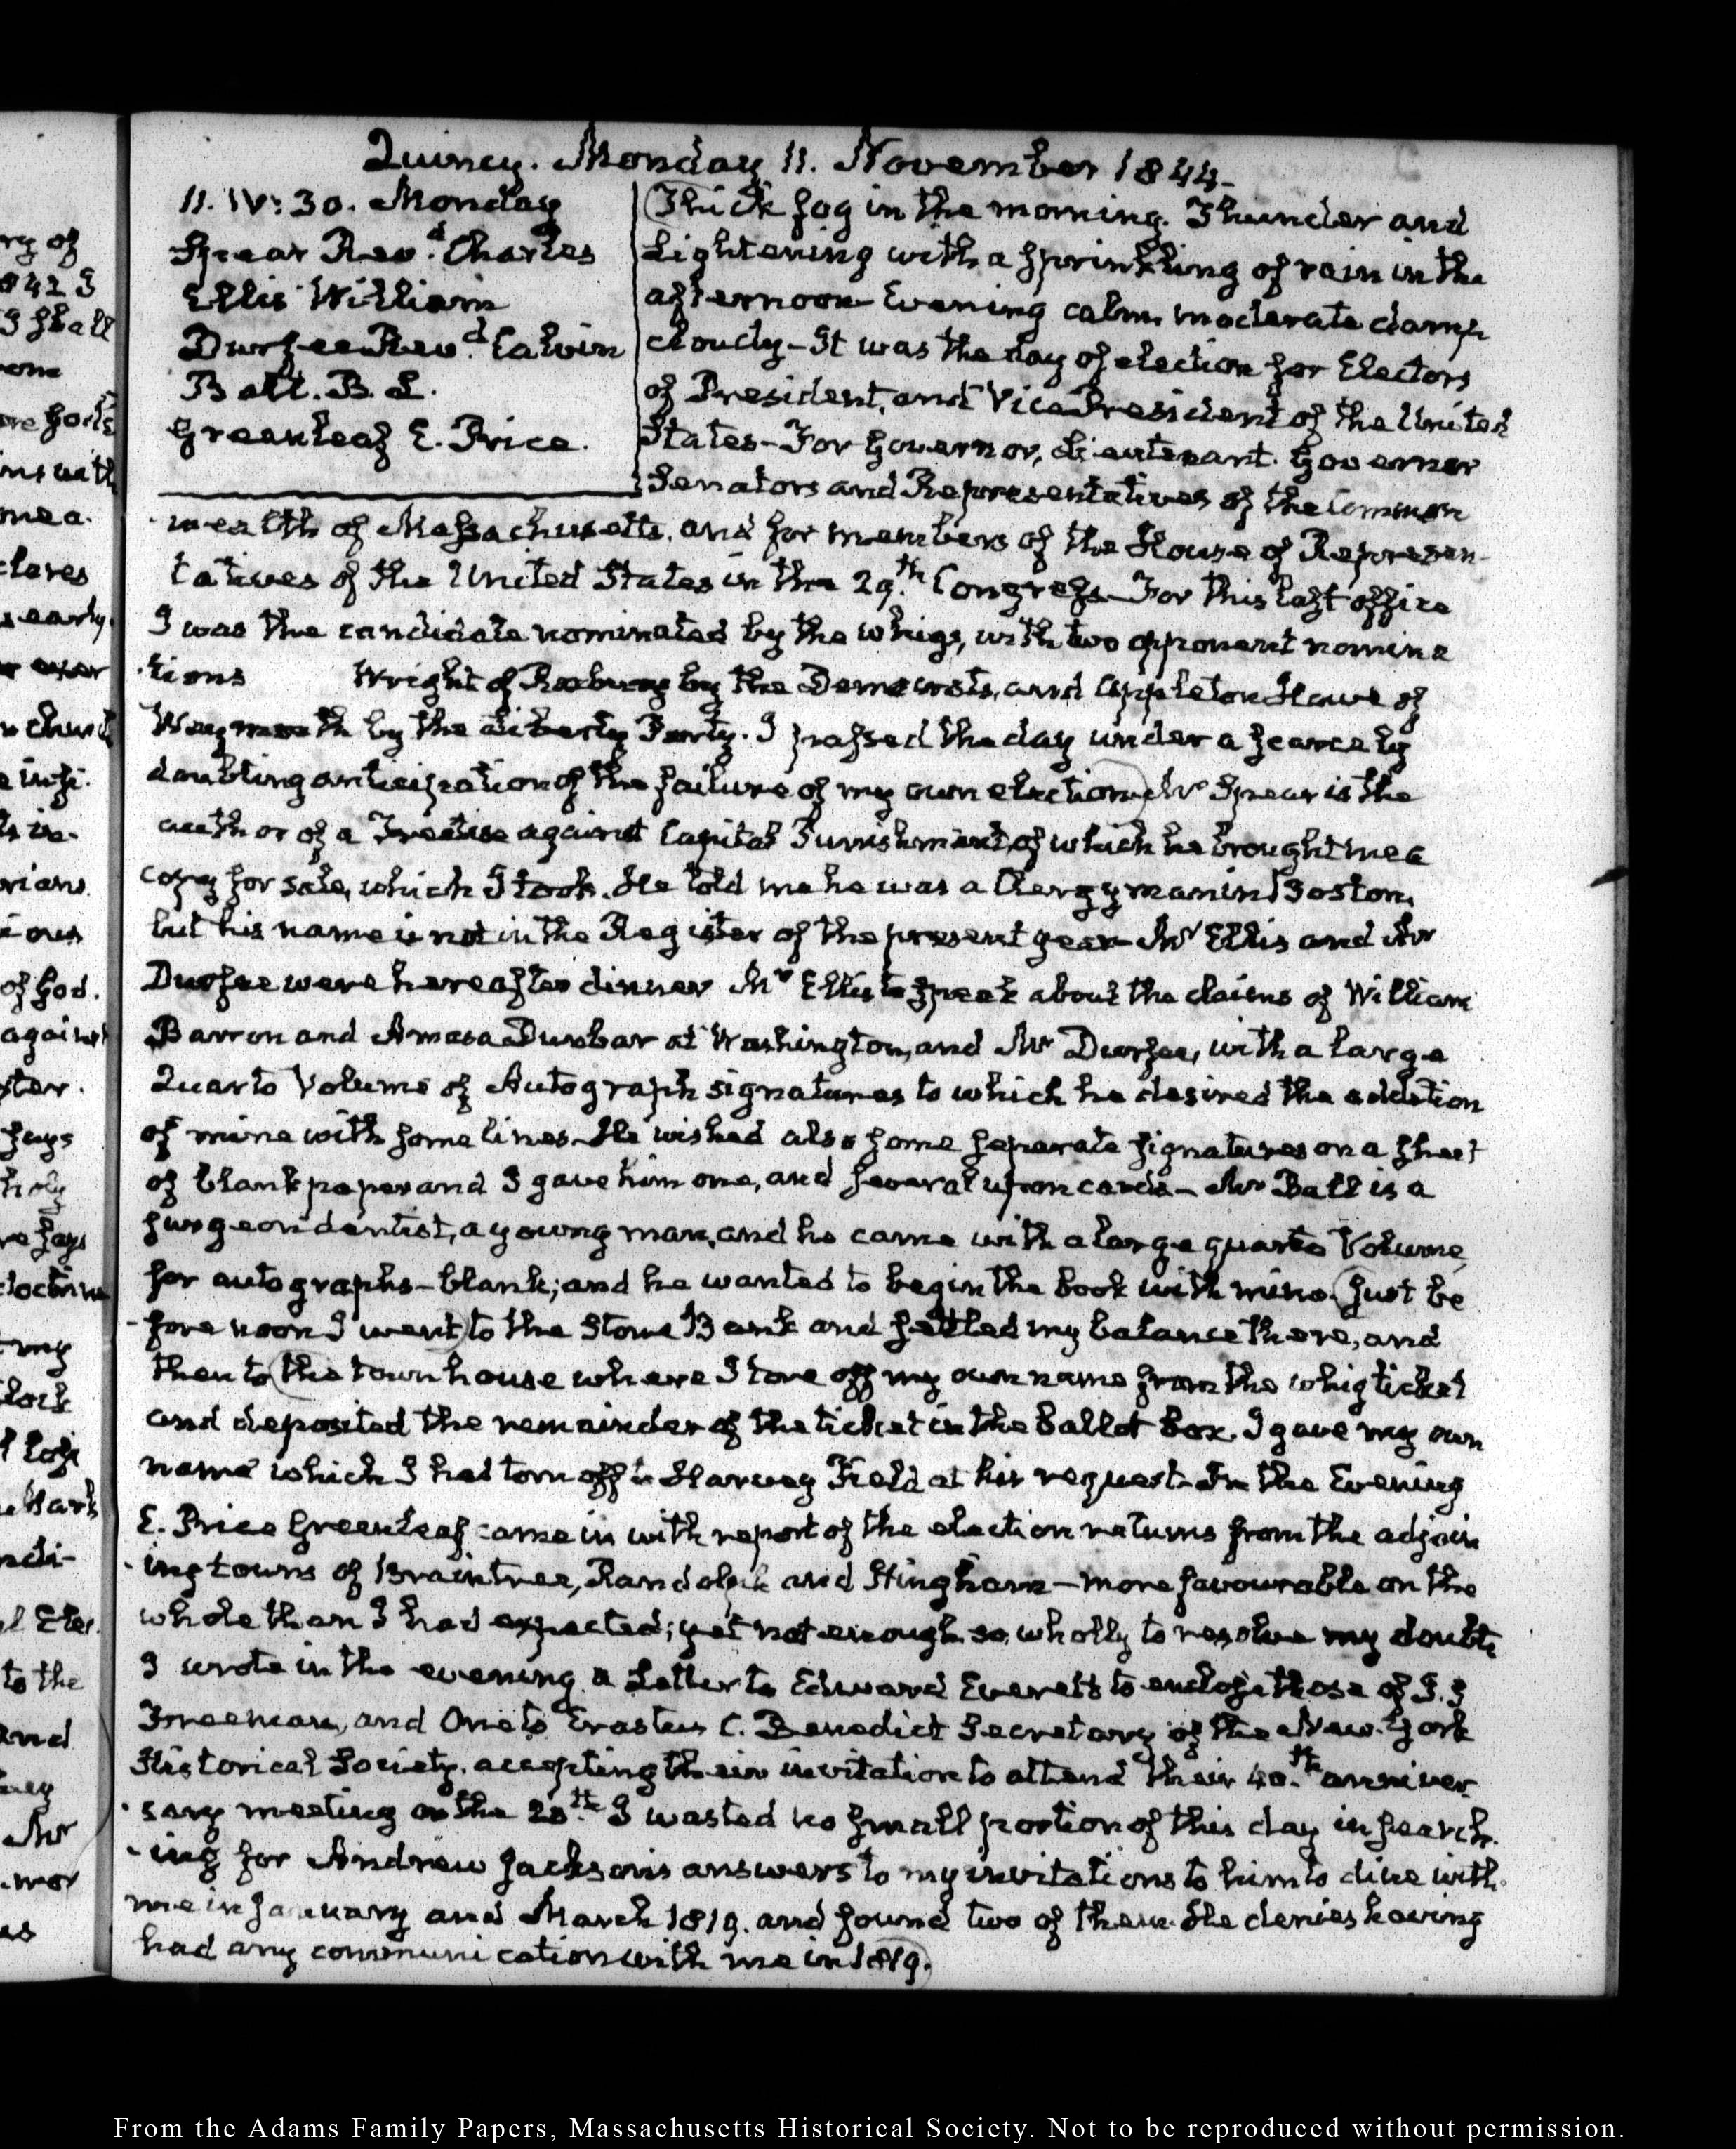 Quincy. Monday 11. November 1844.
11. IV: 30. Monday
Spear Rev.d Charles
Ellis William
Durfee Rev.d Calvin
Ball. B. L.
Greenleaf E. Price.
Thick fog in the morning. Thunder and
Lightening with a sprinkling of rain in the
afternoon Evening calm, moderate damp
cloudy - It was the day of election for Electors
of President, and Vice President of the United
States - For Governor, Lieutenant. Governor
Senators and Representatives of the Common
wealth of Massachusetts, and for members of the House of Represen-
tatives of the United States in the 29.th Congress - For this last office
I was the candidate nominated by the whigs, with two opponent nomina
-tions Wright of Roxbury by the Democrats, and Appleton Howe of
Weymouth by the Liberty Party. I passed the day under a scarcely
doubting anticipation of the failure of my own election. Mr Spear is the
author of a Treatise against Capital Punishment, of which he brought me a
copy for sale, which I took. He told me he was a Clergyman in Boston,
but his name is not in the Register of the present year - Mr Ellis and Mr
Durfee were here after dinner Mr Ellis to speak about the claims of William
Barron and Amasa Dunbar at Washington, and Mr Durfee, with a large
Quarto Volume of Autograph signatures to which he desired the addition
of mine with some lines. He wished also some separate signatures on a sheet
of blank paper and I gave him one, and several upon cards - Mr Ball is a
surgeon dentist, a young man, and he came with a large quarto Volume,
for autographs - blank; and he wanted to begin the book with mine. Just be
-fore noon I went to the Stone Bank and settled my balance there, and
then to the town house where I tore off my own name from the whig ticket
and deposited the remainder of the ticket in the ballot box. I gave my own
name which I had torn off to Harvey Field at his request. In the Evening
E. Price Greenleaf came in with report of the election returns from the adjoin
-ing towns of Braintree, Randolph and Hingham - more favourable on the
whole than I had expected; yet not enough so, wholly to resolve my doubts
I wrote in the evening a Letter to Edward Everett to enclose those of J. J
Freeman, and One to Erastus C. Benedict Secretary of the New-York
Historical Society, accepting their invitation to attend their 40.th anniver
-sary meeting on the 20th. I wasted no small portion of this day in search
-ing for Andrew Jackson's answers to my invitations to him to dine with
me in January and March 1819. and found two of them. He denies having
had any communication with me in 1819.
From the Adams Family Papers, Massachusetts Historical Society. Not to be reproduced without permission.